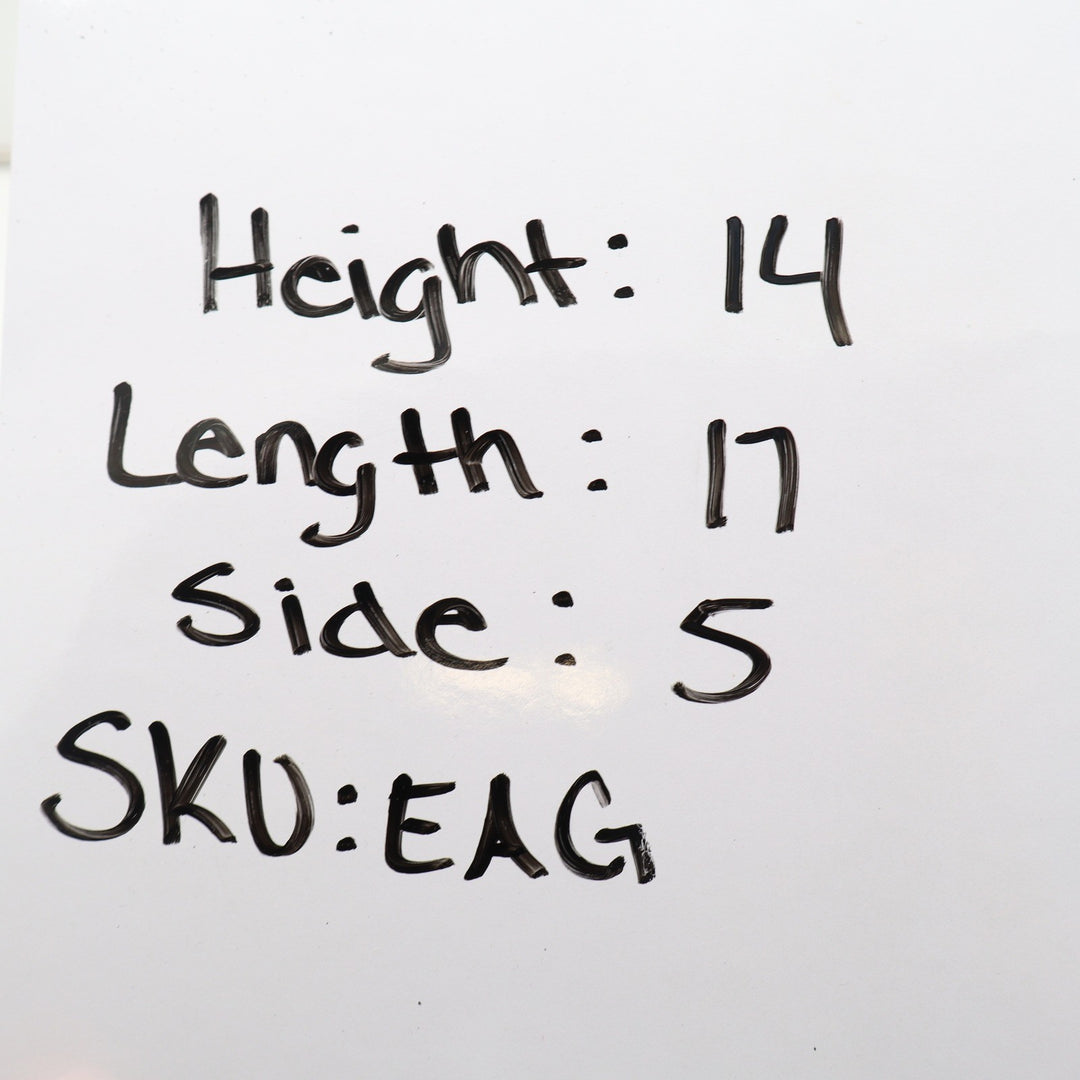 Height: 14
Length: 17
Side: 5
SKU:EAG